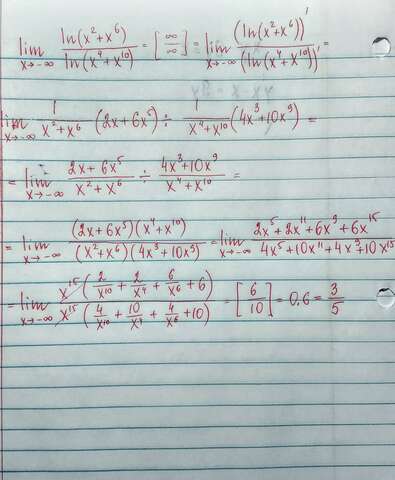 lim x→-∞ ln(x²+x⁶)/ln(x⁴+x¹⁰) = [∞/∞] = lim x→-∞ (ln(x²+x⁶))'/(ln(x⁴+x¹⁰))' =
lim x→-∞ 1/(x²+x⁶) (2x+6x⁵) ÷ 1/(x⁴+x¹⁰) (4x³+10x⁹) =
= lim x→-∞ (2x+6x⁵)/(x²+x⁶) ÷ (4x³+10x⁹)/(x⁴+x¹⁰) =
= lim x→-∞ (2x+6x⁵)(x⁴+x¹⁰)/(x²+x⁶)(4x³+10x⁹) = lim x→-∞ (2x⁵+2x¹¹+6x⁹+6x¹⁵)/(4x⁵+10x¹¹+4x⁹+10x¹⁵)
= lim x→-∞ x¹⁵(2/x¹⁰+2/x⁴+6/x⁶+6)/x¹⁵(4/x¹⁰+10/x⁴+4/x⁶+10) = [6/10] = 0.6 = 3/5